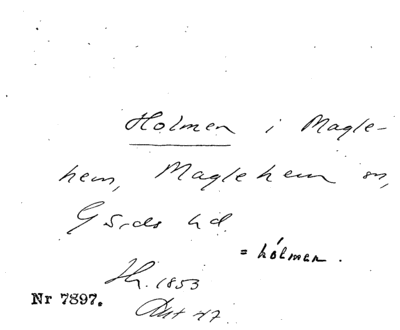 Holmen i Magle-
hem, Maglehem sn,
Gärds hd.
= hólmen.
Hr. 1853
Nr 7897.